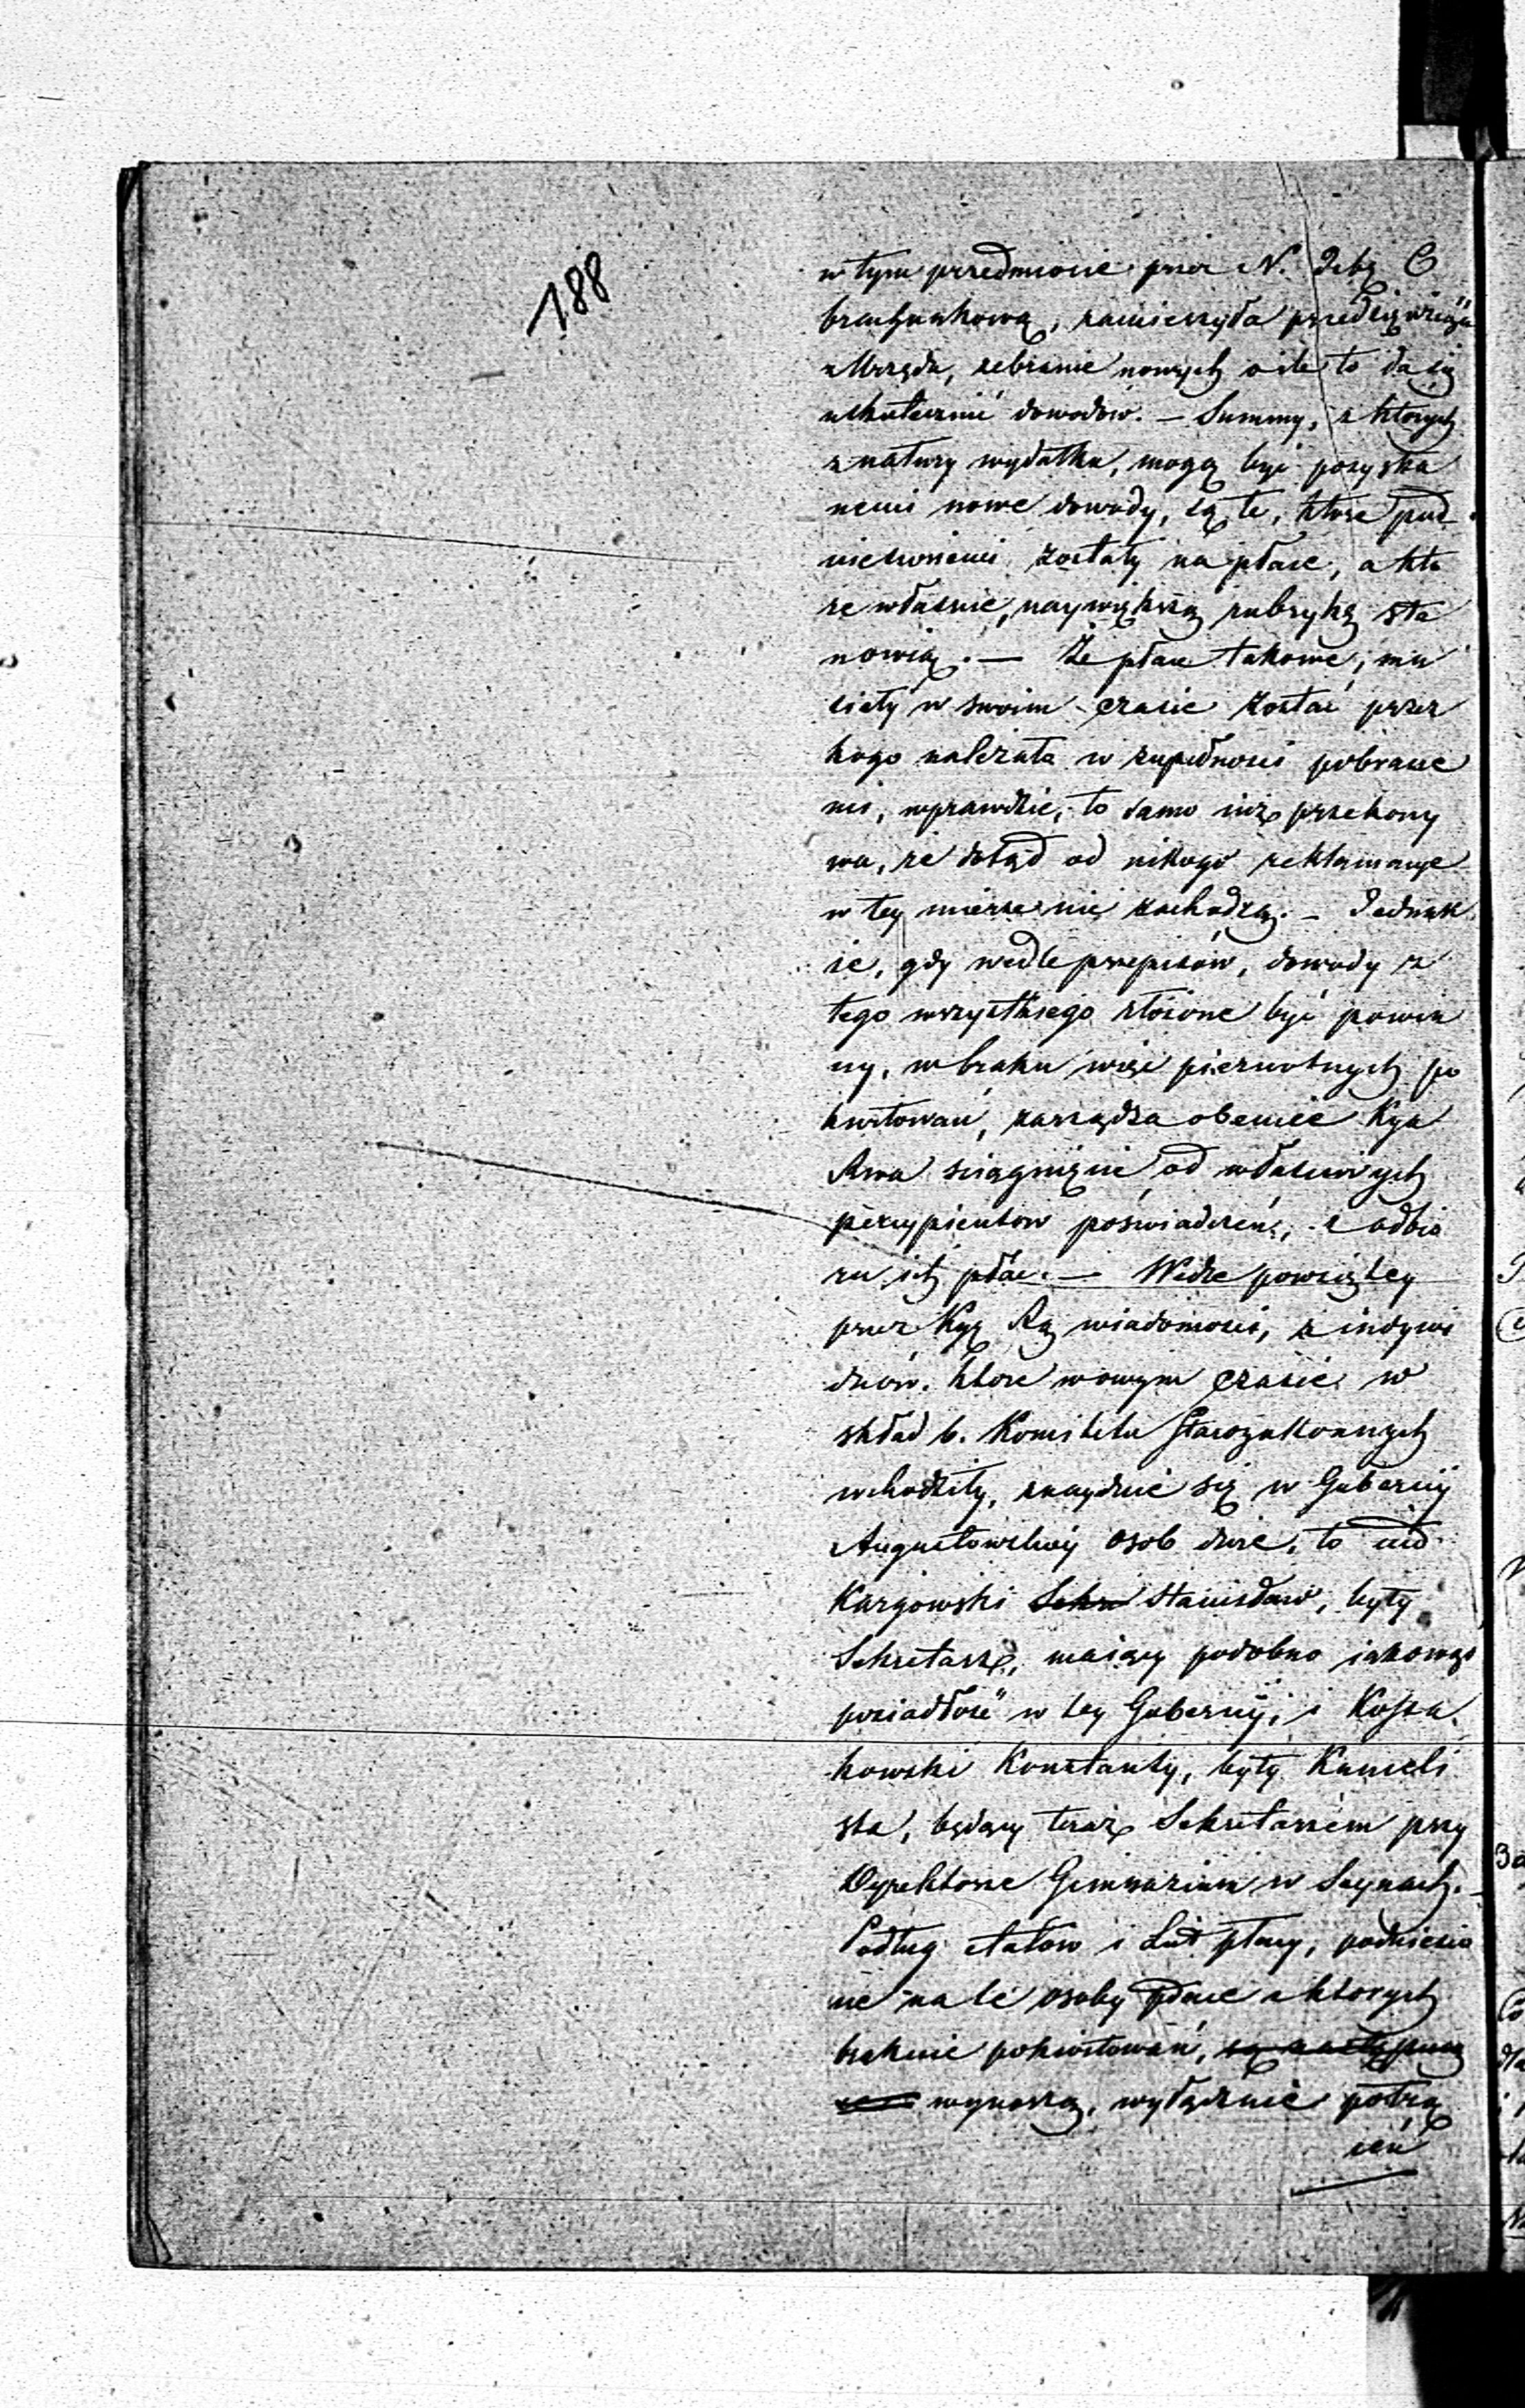 188
w tym przedmiocie przez N. Izbę O
brachunkową, zamierzyła przedsięwziąć
z Urzędu, zebranie nowych o ile to da się
uskutecznić dowodów. — Summy, z których
z natury wydatku, mogą być pozyska
nemi nowe dowody, są te, które pod
niesionemi zostały na płace, a któ
re właśnie, naywiększą rubrykę sta
nowią. — Że płace takowe, mu
siały w swoim czasie zostać przez
kogo należało w zupełności pobrane
mi, wprawdzie, to samo iuż przekony
wa, że dotąd od nikogo reklamacye
w tey mierze nie zachodzą. — Jednak
że, gdy wedle przepisów, dowody z
tego wszystkiego złożone być powin
ny, w braku więc pierwotnych po
kwitowań, zarządza obecnie Kya
Rwa ściągnięcie od właściwych
percypientów poświadczeń, z odbio
ru ich płac. — Wedle powziętey
przez Kyę Rą wiadomości, z indywi
duów, które w owym czasie w
skład b. Komitetu Starozakonnych
wchodziły, znayduie się w Gubernij
Augustowskiey osób dwie, to iest
Kargowski Sekr Stanisław, były
Sekretarz, maiący podobno iakowąś
posiadłość w tey Gubernij, i Kossa
kowski Konstanty, były Kancelli
sta, będący teraz Sekretarzem przy
Dyrektorze Gimnazium w Seynach. —
Podług etatów i List płacy, podniesio
ne na te osoby płace z których
braknie pokwitowań, są następuiąc
wynoszą, wyłącznie potrą
ceń